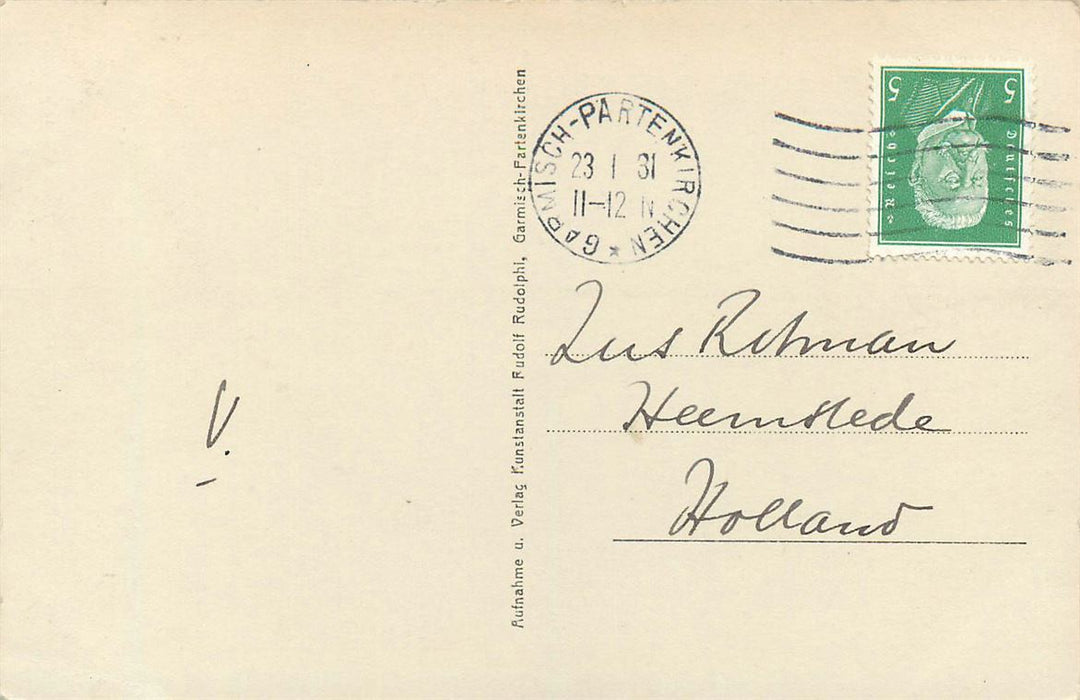 V.
Aufnahme u. Verlag Kunstanstalt Rudolf Rudolphi, Garmisch-Partenkirchen
GARMISCH-PARTENKIRCHEN *
23 1 31
11-12 N
5 5
Deutsches Reich
Zus Rotman
Heemstede
Holland